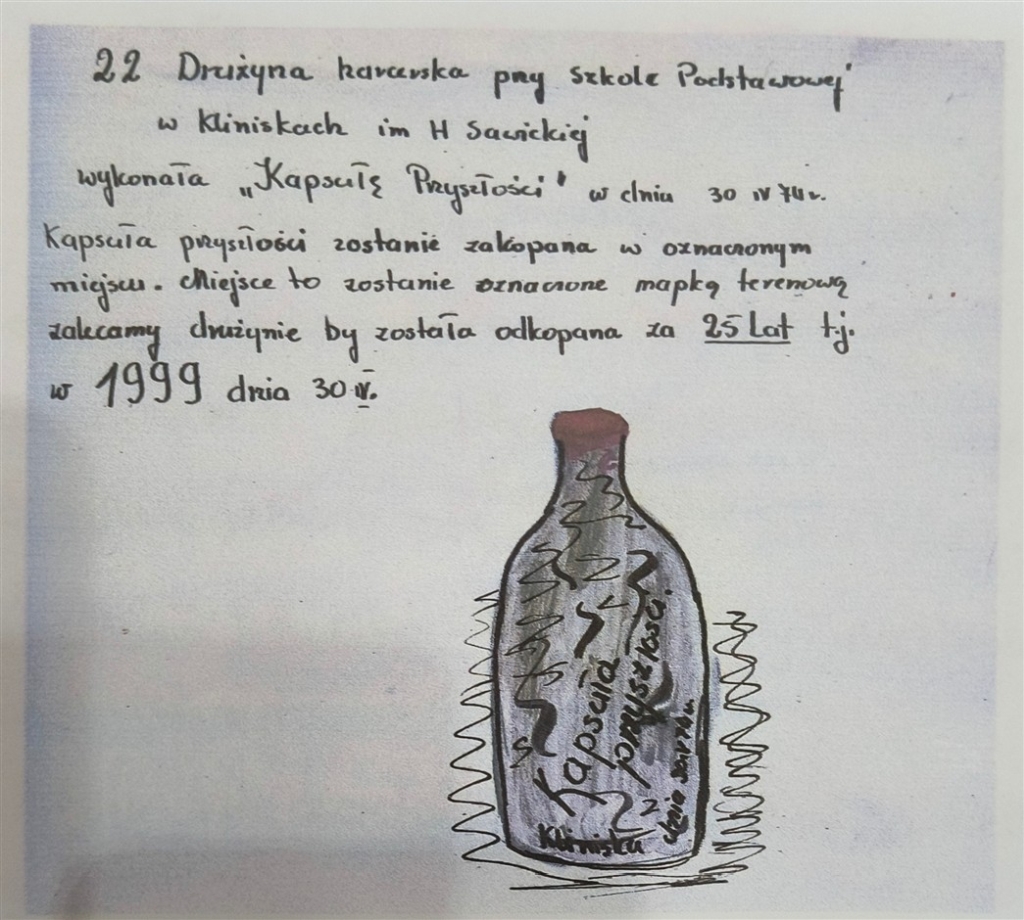 22 Drużyna harcerska przy Szkole Podstawowej
w Kliniskach im H Sawickiej
wykonała „Kapsułę Przyszłości" w dniu 30 IV 74 r.
Kapsuła przyszłości zostanie zakopana w oznaczonym
miejscu. Miejsce to zostanie oznaczone mapką terenową
zalecamy drużynie by została odkopana za 25 Lat t.j.
w 1999 dnia 30 IV.
Kapsuła
przyszłości
z dnia
Kliniska